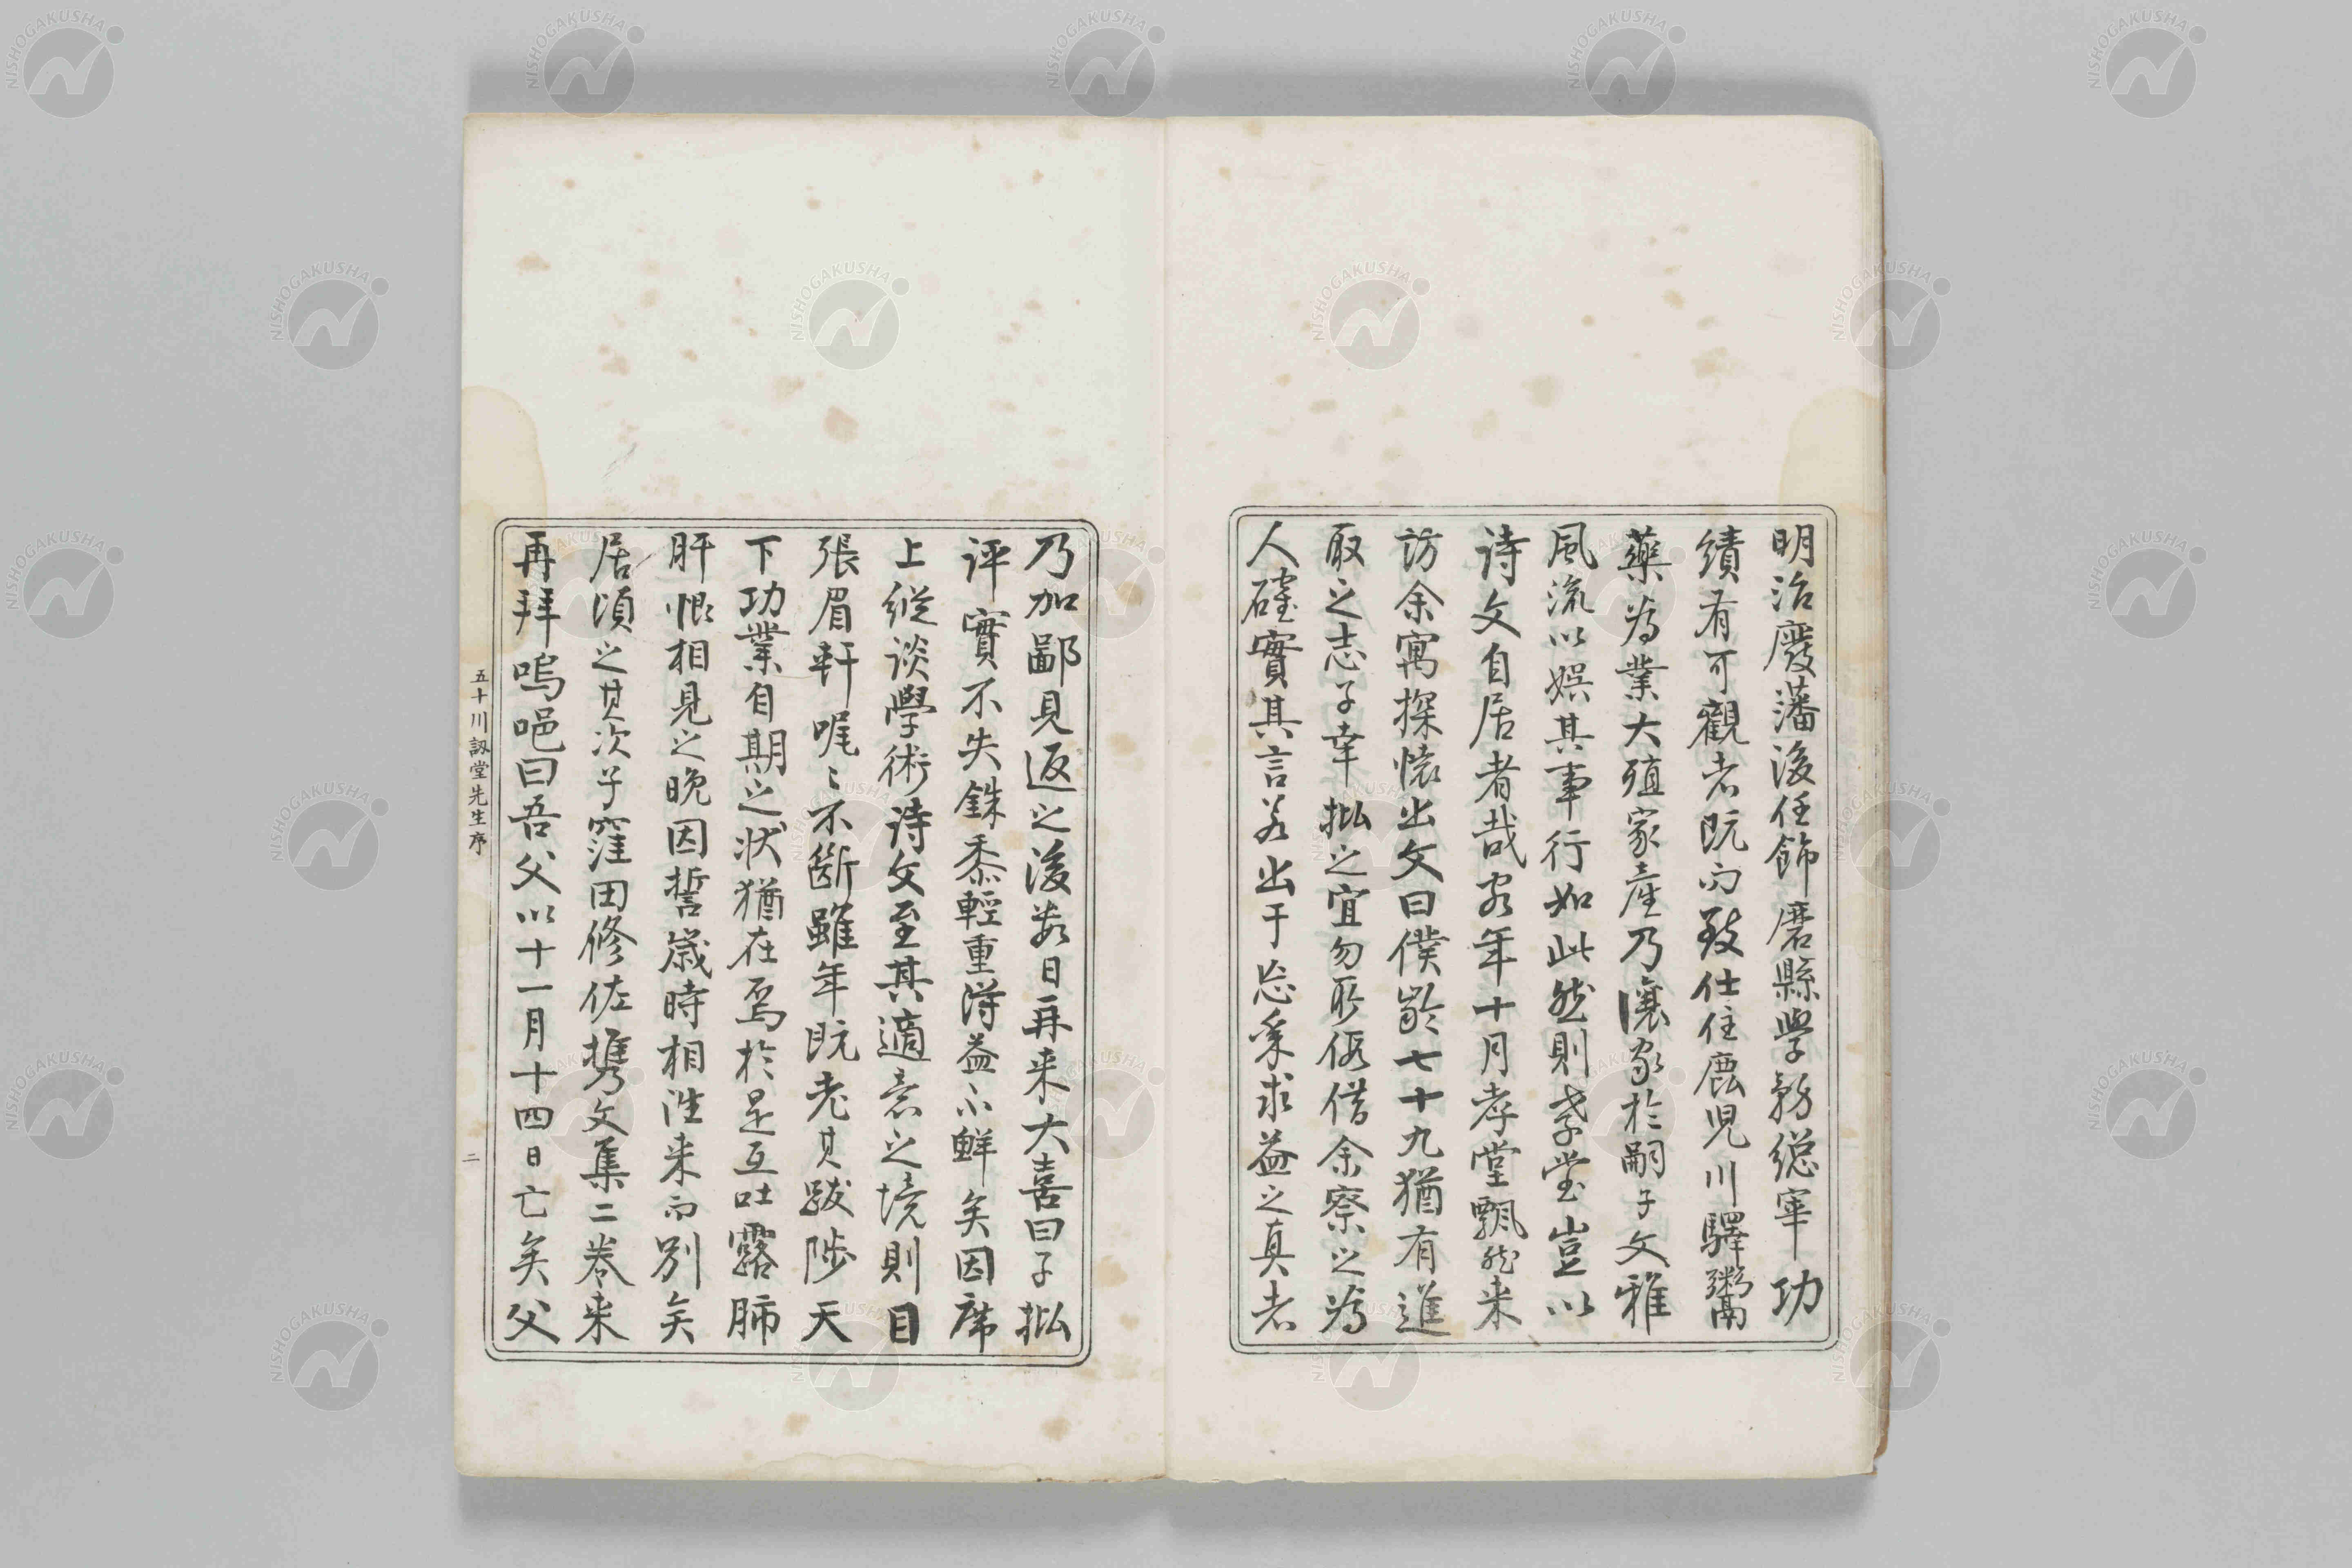 明治廢藩後任飾磨縣學務総宰功
績有可觀者既而致仕住鹿児川驛鬻
藥為業大殖家産乃讓家於嗣子文雅
風流以娯其事行如此然則孝堂豈以
詩文自居者哉客年十月孝堂飄然来
訪余寓探懐出文曰僕齡七十九猶有進
取之志子幸批之宜勿所假借余察之為
人確實其言若出于忘乎求益之真者
乃加鄙見返之後数日再来大喜曰子批
評實不失銖黍輕重得益不鮮矣因席
上縦談學術詩文至其適意之境則目
張眉軒喔〻不斷雖年既老其跋陟天
下功業自期之状猶在焉於是互吐露肺
肝恨相見之晩因誓歳時相往来而別矣
居頃之其次子窪田修佐携文集二巻来
再拜嗚唈曰吾父以十一月十四日亡矣父
五十川訒堂先生序
二
NISHOGAKUSHA